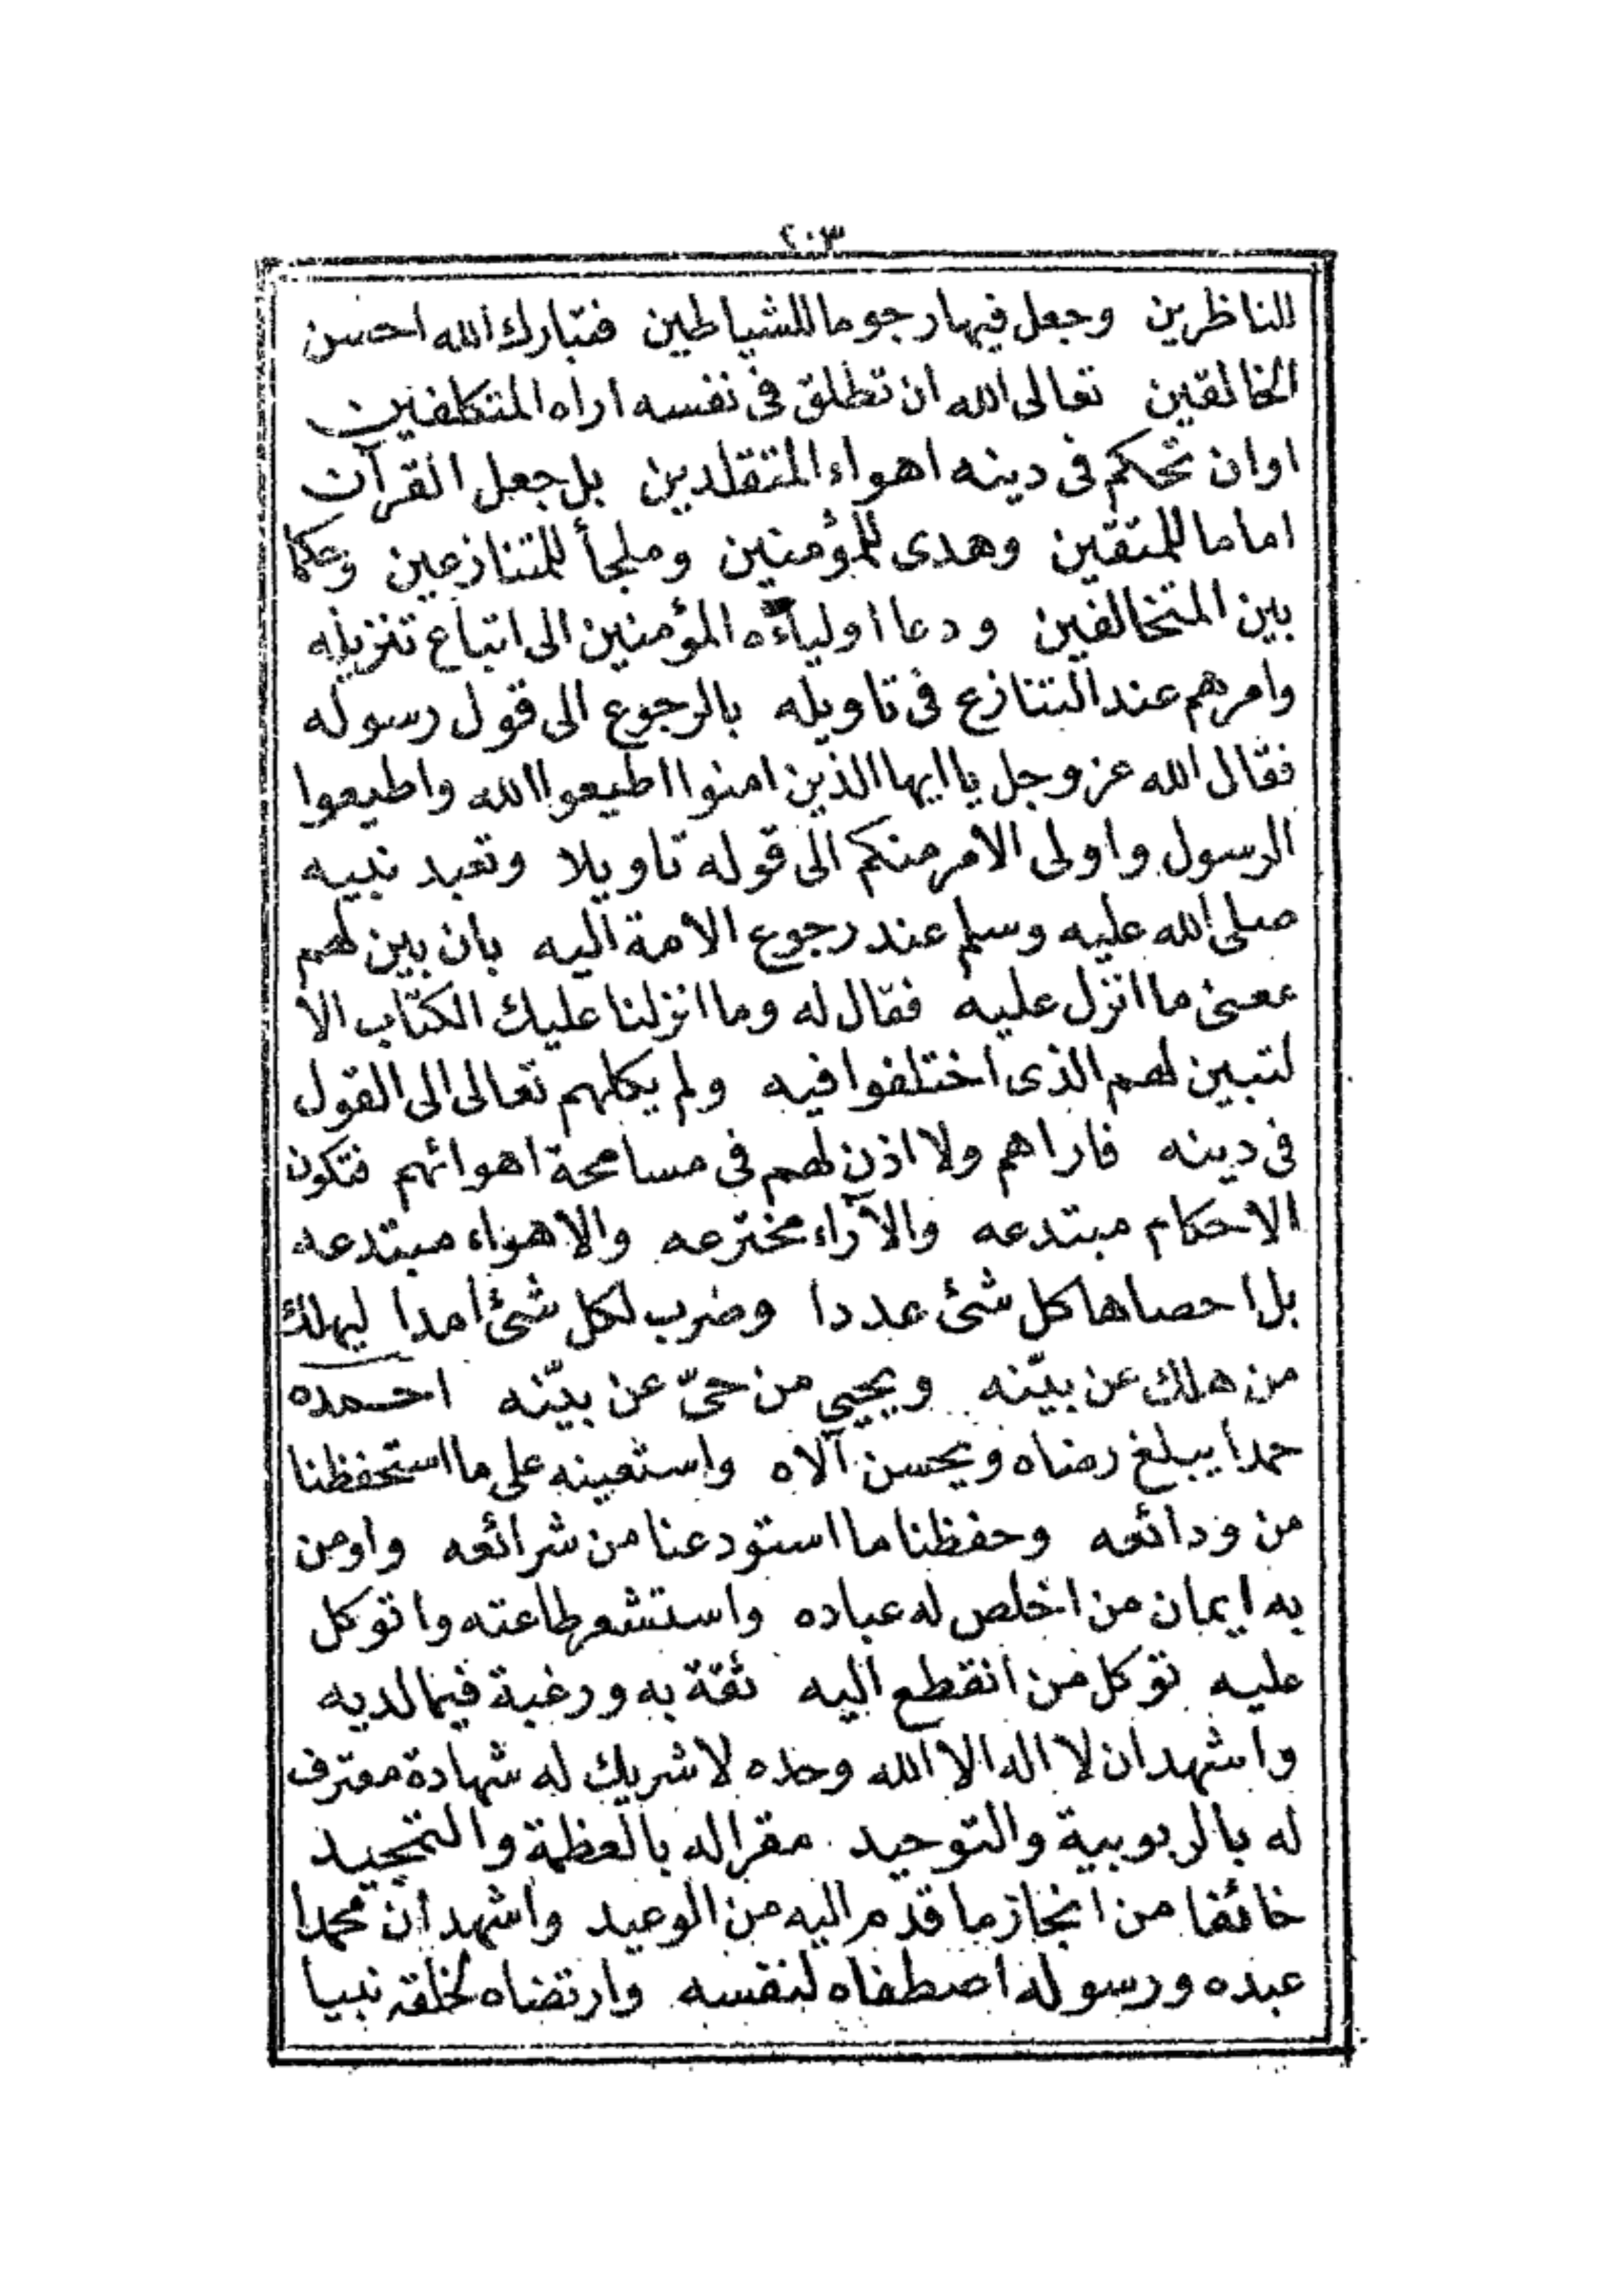 ٢٠٣
للناظرين وجعل فيها رجوما للشياطين فتبارك الله احسن
الخالقين تعالى الله ان تطلق فى نفسه اراه المتكلفين
اوان تحكم فى دينه اهواء المتقلدين بل جعل القرآن
اماما للمتقين وهدى للمؤمنين وملجأ للمتنازعين وحكما
بين المتخالفين ودعا اولياءه المؤمنين الى اتباع تنزيله
وامرهم عند التنازع فى تاويله بالرجوع الى قول رسوله
فقال الله عز وجل يا ايها الذين امنوا اطيعوا الله واطيعوا
الرسول واولى الامر منكم الى قوله تاويلا وتعبد نبيه
صلى الله عليه وسلم عند رجوع الامة اليه بان بين لهم
معنى ما انزل عليه فقال له وما انزلنا عليك الكتاب الا
لتبين لهم الذى اختلفوا فيه ولم يكلهم تعالى الى القول
فى دينه فاراهم ولا اذن لهم فى مسامحة اهوائهم فتكون
الاحكام مبتدعه والآراء مخترعه والاهواء مبتدعه
بل احصاها كل شئ عددا وضرب لكل شئ امدا ليهلك
من هلك عن بيّنه ويحيي من حىّ عن بيّنه احمده
حمدا يبلغ رضاه ويحسن آلاه واستعينه على ما استحفظنا
من ودائعه وحفظنا ما استودعنا من شرائعه واومن
به ايمان من اخلص له عباده واستشعر طاعته واتوكل
عليه توكل من انقطع اليه ثقة به ورغبة فيما لديه
واشهد ان لا اله الا الله وحده لا شريك له شهادة معترف
له بالربوبية والتوحيد مقرا له بالعظمة والتمجيد
خائفا من انجاز ما قدم اليه من الوعيد واشهد ان محمدا
عبده ورسوله اصطفاه لنفسه وارتضاه لخلقه نبيا